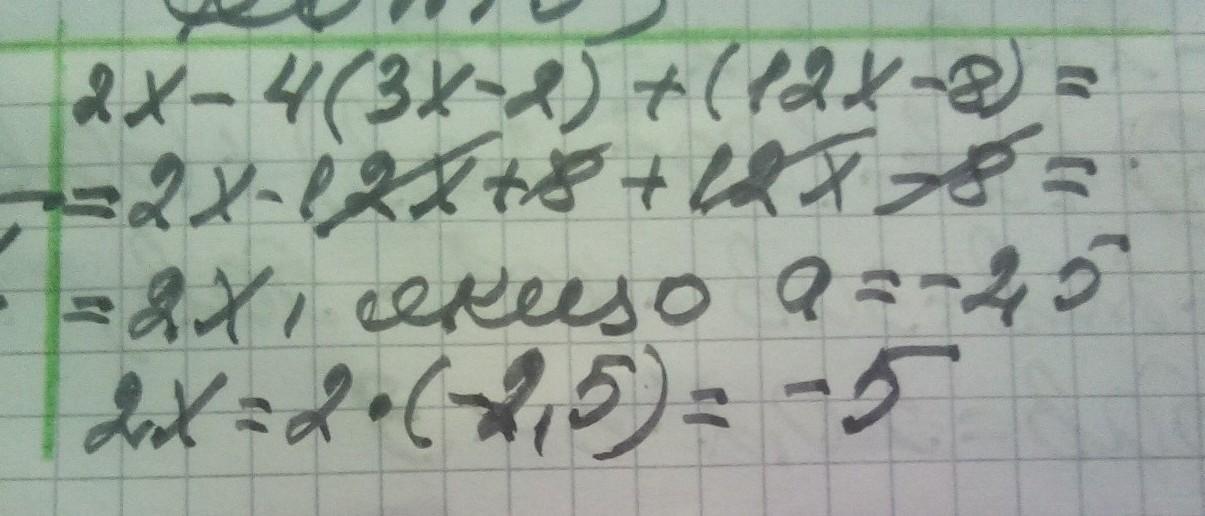 2x - 4(3x - 2) + (12x - 8) =
= 2x - 12x + 8 + 12x - 8 =
= 2x, якщо a = -2,5
2x = 2 · (-2,5) = -5